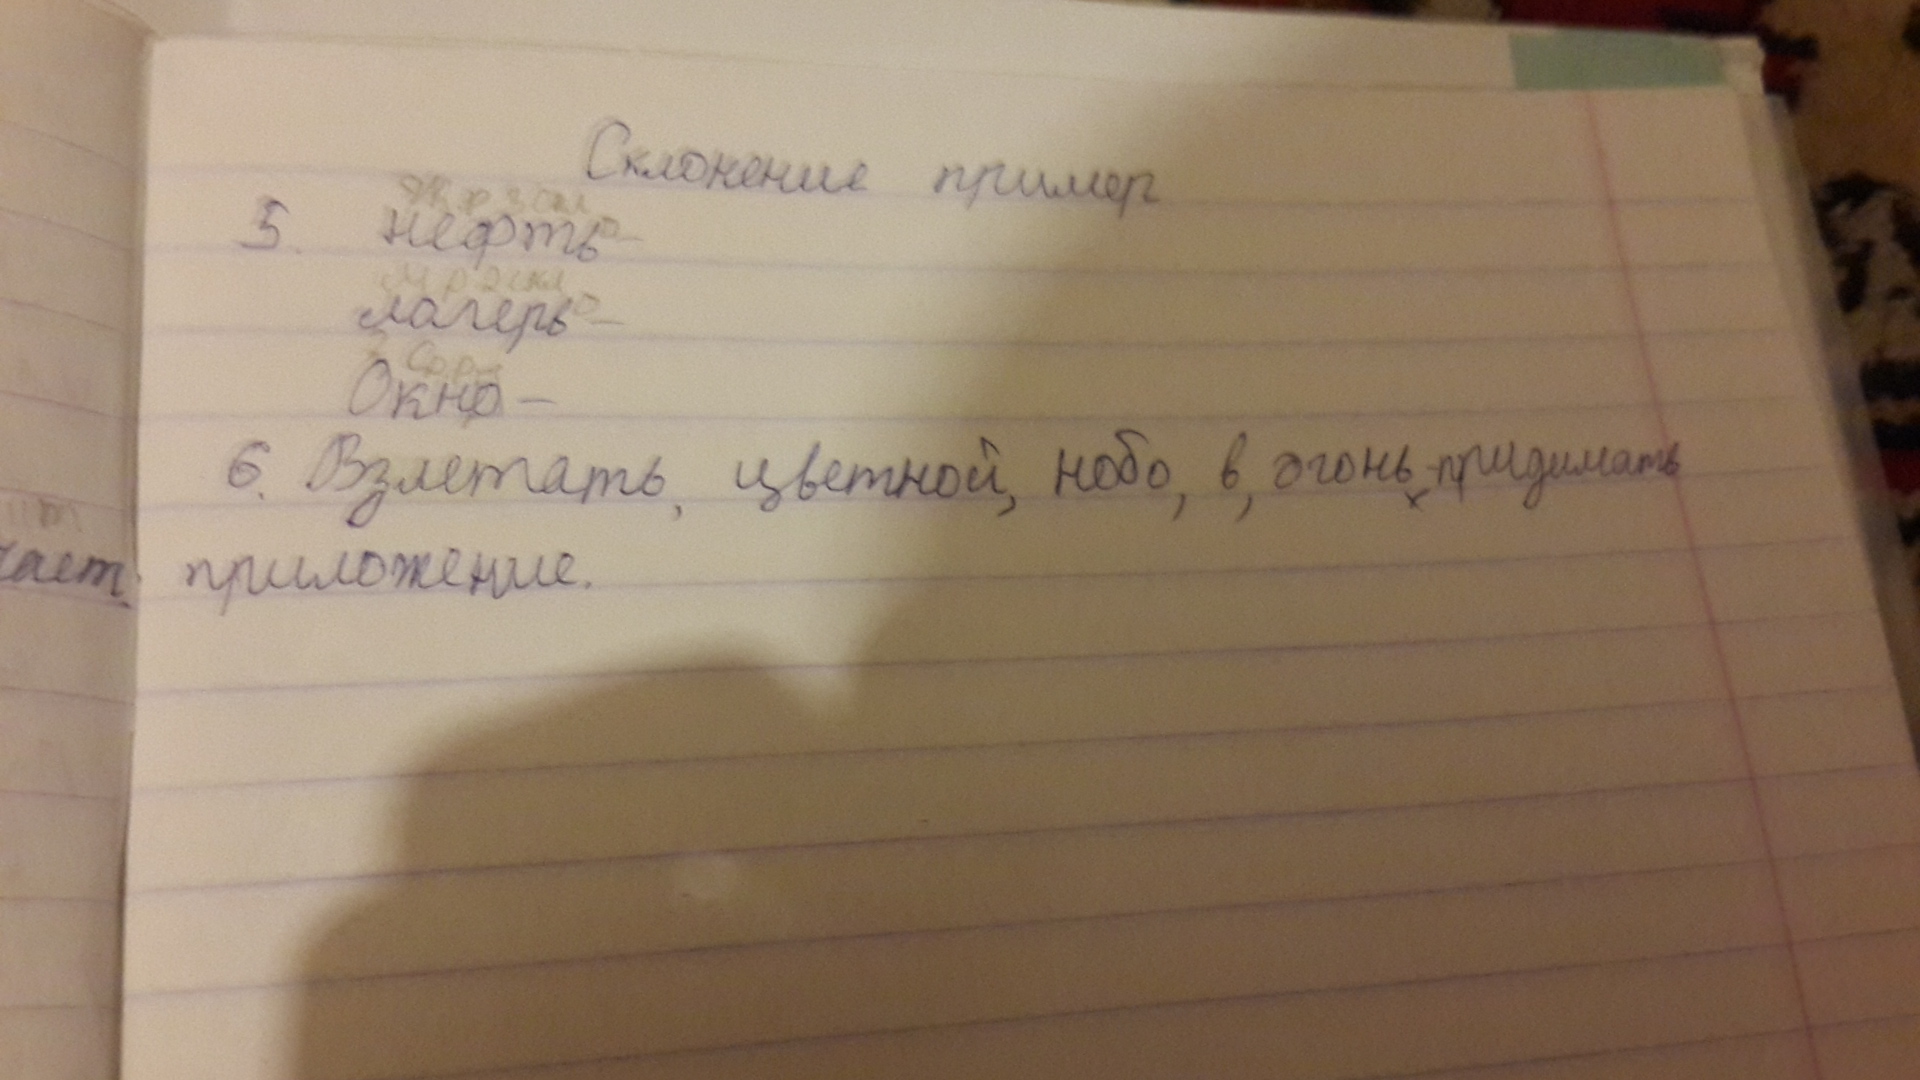 Склонение пример
ж р 3 скл
5. нефть-
м р 2 скл
лагерь-
Ср р
Окно-
6. Взлетать, цветной, небо, в, огонь, -придимать
приложение.